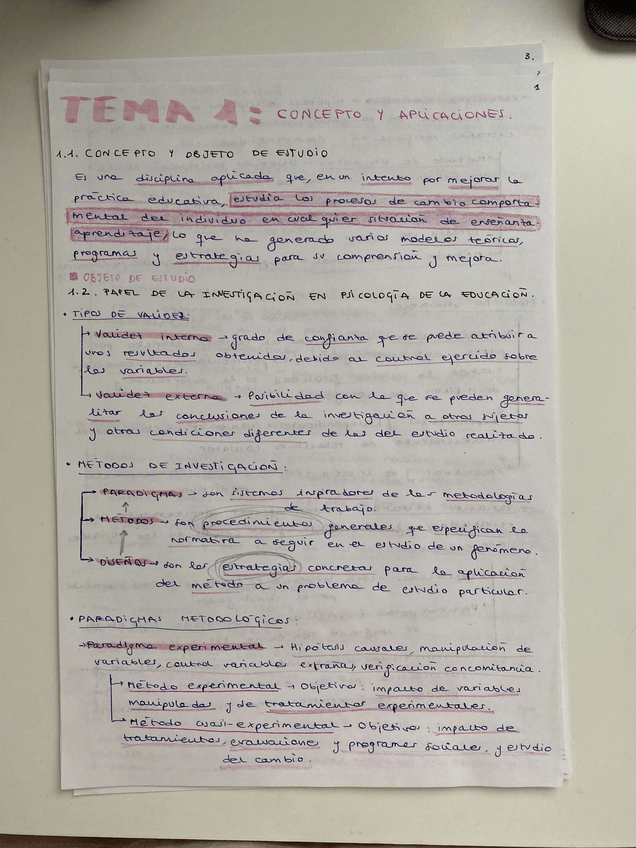 3.
2
1
TEMA 1: CONCEPTO Y APLICACIONES.
1.1. CONCEPTO Y OBJETO DE ESTUDIO
Es una disciplina aplicada que, en un intento por mejorar la
práctica educativa, estudia los procesos de cambio comporta-
mental del individuo en cualquier situación de enseñanza-
aprendizaje, lo que ha generado varios modelos teóricos,
programas y estrategias para su comprensión y mejora.
OBJETO DE ESTUDIO
1.2. PAPEL DE LA INVESTIGACIÓN EN PSICOLOGÍA DE LA EDUCACIÓN.
• TIPOS DE VALIDEZ:
→ Validez interna → grado de confianza que se puede atribuir a
unos resultados obtenidos, debido al control ejercido sobre
las variables.
→ Validez externa → Posibilidad con la que se pueden genera-
lizar las conclusiones de la investigación a otros sujetos
y otras condiciones diferentes de las del estudio realizado.
• MÉTODOS DE INVESTIGACIÓN:
→ PARADIGMAS → son sistemas inspiradores de las metodologías
de trabajo.
→ MÉTODOS → son procedimientos generales que especifican la
normativa a seguir en el estudio de un fenómeno.
→ DISEÑOS → son las estrategias concretas para la aplicación
del método a un problema de estudio particular.
• PARADIGMAS METODOLÓGICOS:
→ Paradigma experimental → Hipótesis causales, manipulación de
variables, control variables extrañas, verificación concomitancia.
→ Método experimental → Objetivos: impacto de variables
manipuladas y de tratamientos experimentales.
→ Método cuasi-experimental → Objetivos: impacto de
tratamientos, evaluaciones y programas sociales, y estudio
del cambio.